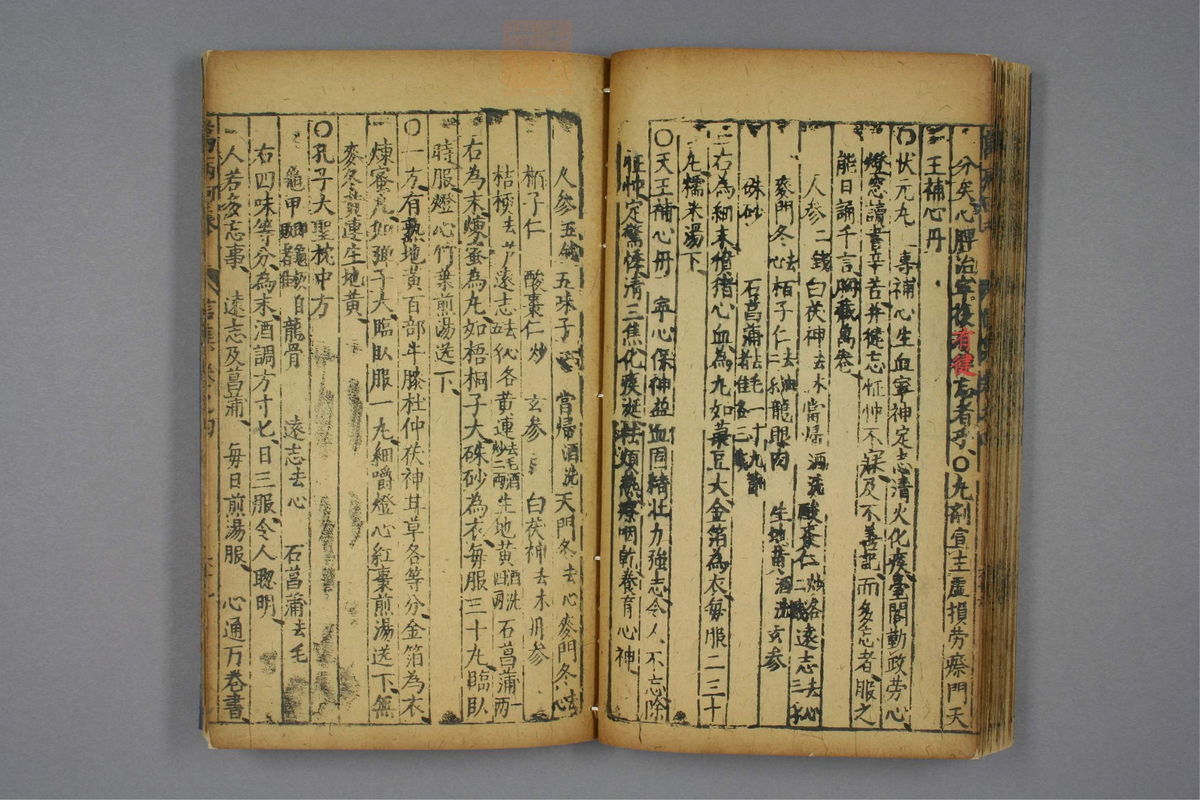 分矣心脾治寧後有健忘者乎〇丸劑宜主虛損勞瘵門天
王補心丹
〇伏元丸 專補心生血寧神定志清火化痰臺閣勤政勞心
燈窓讀書辛苦并健忘怔忡不寐及不善記而多忘者服之
能日誦千言胸藏萬卷
人參二錢 白茯神去木 當歸酒洗 酸棗仁炒各二錢 遠志去心
麥門冬去心 栢子仁去油 龍眼肉 生地黃酒洗 玄參
硃砂 石菖蒲去毛一寸九節者佳
右為細末獖猪心血為丸如菉豆大金箔為衣每服二三十
丸糯米湯下
〇天王補心丹 寧心保神益血固精壯力強志令人不忘除
怔忡定驚悸清三焦化痰涎祛煩熱療咽乾養育心神
人參五錢 五味子 當歸酒洗 天門冬去心 麥門冬去心
栢子仁 酸棗仁炒 玄參 白茯神去木 丹參
桔梗去芦 遠志去心 黃連去毛酒炒二兩 生地黃酒洗四兩 石菖蒲一兩
右為末煉蜜為丸如梧桐子大硃砂為衣每服三十丸臨臥
時服燈心竹葉煎湯送下
〇一方有熟地黃百部牛膝杜仲茯神甘草各等分金箔為衣
煉蜜丸如彈子大臨臥服一丸細嚼燈心紅棗煎湯送下無
麥冬黃連生地黃
〇孔子大聖枕中方
龜甲 龍骨 遠志去心 石菖蒲去毛
右四味等分為末酒調方寸匕日三服令人聰明
一人若多忘事 遠志及菖蒲 每日煎湯服 心通万卷書